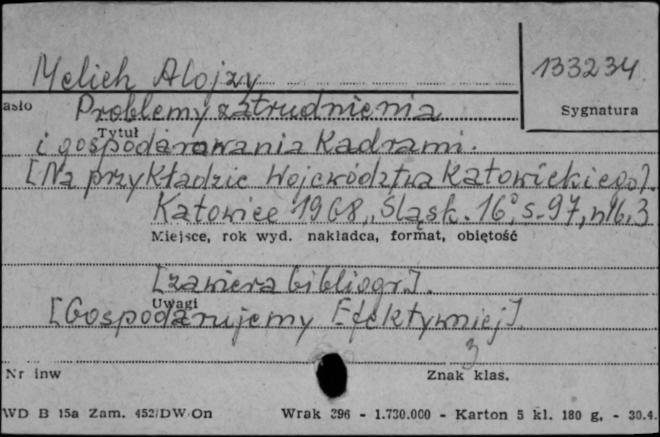 Melich Alojzy
133234
asło
Problemy zatrudnienia
Sygnatura
Tytuł
i gospodarowania Kadrami.
[Na przykładzie Województwa Katowickiego].
Katowice 1968, "Śląsk". 16°, s. 97, nlb. 3
Miejsce, rok wyd. nakładca, format, objętość
[zawiera bibliogr.].
Uwagi
[Gospodarujemy Efektywniej]
3
Nr inw
Znak klas.
WD B 15a Zam. 452/DW On Wrak 396 - 1.730.000 - Karton 5 kl. 180 g. - 30.4.